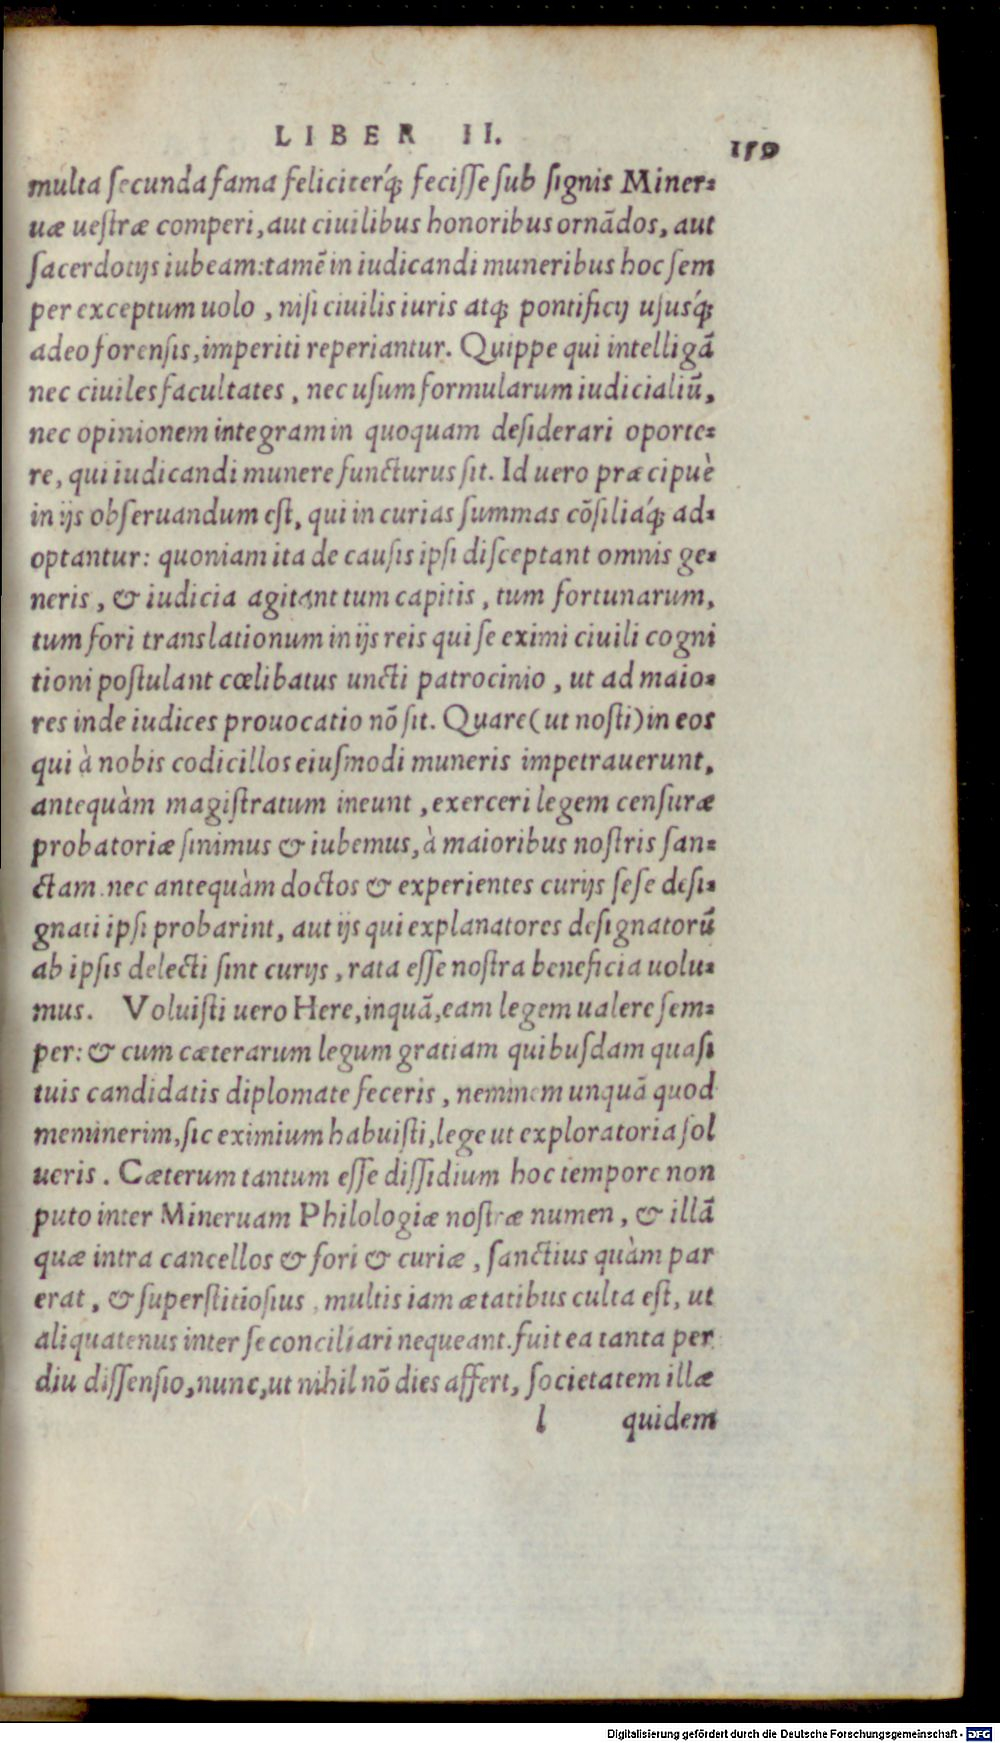 LIBER II. 159
multa secunda fama feliciterq́; fecisse sub signis Miner-
uæ uestræ comperi, aut ciuilibus honoribus ornãdos, aut
sacerdotijs iubeam: tamẽ in iudicandi muneribus hoc sem
per exceptum uolo, nisi ciuilis iuris atq; pontificij ususq́;
adeo forensis, imperiti reperiantur. Quippe qui intelligã
nec ciuiles facultates, nec usum formularum iudicialiũ,
nec opinionem integram in quoquam desiderari oporte-
re, qui iudicandi munere functurus sit. Id uero præcipuè
in ijs obseruandum est, qui in curias summas cõsiliaq́; ad-
optantur: quoniam ita de causis ipsi disceptant omnis ge-
neris, & iudicia agitant tum capitis, tum fortunarum,
tum fori translationum in ijs reis qui se eximi ciuili cogni
tioni postulant cœlibatus uncti patrocinio, ut ad maio-
res inde iudices prouocatio nõ sit. Quare (ut nosti) in eos
qui à nobis codicillos eiusmodi muneris impetrauerunt,
antequàm magistratum ineunt, exerceri legem censuræ
probatoriæ sinimus & iubemus, à maioribus nostris san-
ctam. nec antequàm doctos & experientes curijs sese desi-
gnati ipsi probarint, aut ijs qui explanatores designatorũ
ab ipsis delecti sint curijs, rata esse nostra beneficia uolu-
mus. Voluisti uero Here, inquã, eam legem ualere sem-
per: & cum cæterarum legum gratiam quibusdam quasi
tuis candidatis diplomate feceris, neminem unquã quod
meminerim, sic eximium habuisti, lege ut exploratoria sol
ueris. Cæterum tantum esse dissidium hoc tempore non
puto inter Mineruam Philologiæ nostræ numen, & illã
quæ intra cancellos & fori & curiæ, sanctius quàm par
erat, & superstitiosius, multis iam ætatibus culta est, ut
aliquatenus inter se conciliari nequeant. fuit ea tanta per
diu dissensio, nunc, ut nihil nõ dies affert, societatem illæ
l quidem
Digitalisierung gefördert durch die Deutsche Forschungsgemeinschaft - DFG